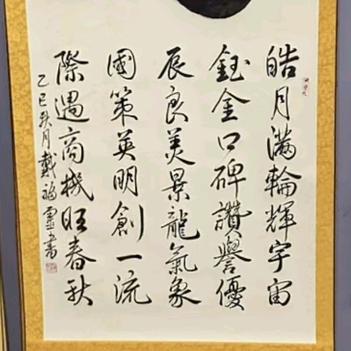 皓月滿輪輝宇宙
鈺金口碑讚譽優
辰良美景龍氣象
國策英明創一流
際遇商機旺春秋
乙巳秋月戴福靈書